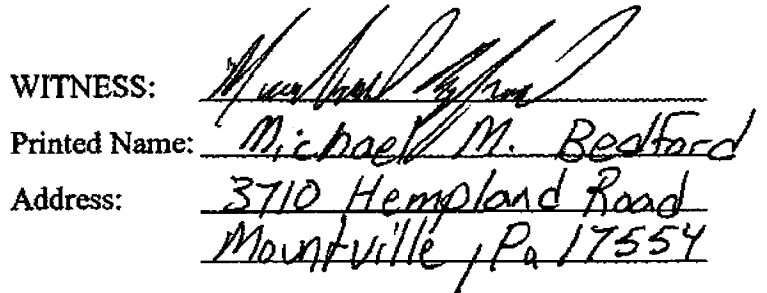 WITNESS:
Printed Name: Michael M. Bedford
Address: 3710 Hempland Road
Mountville, Pa 17554